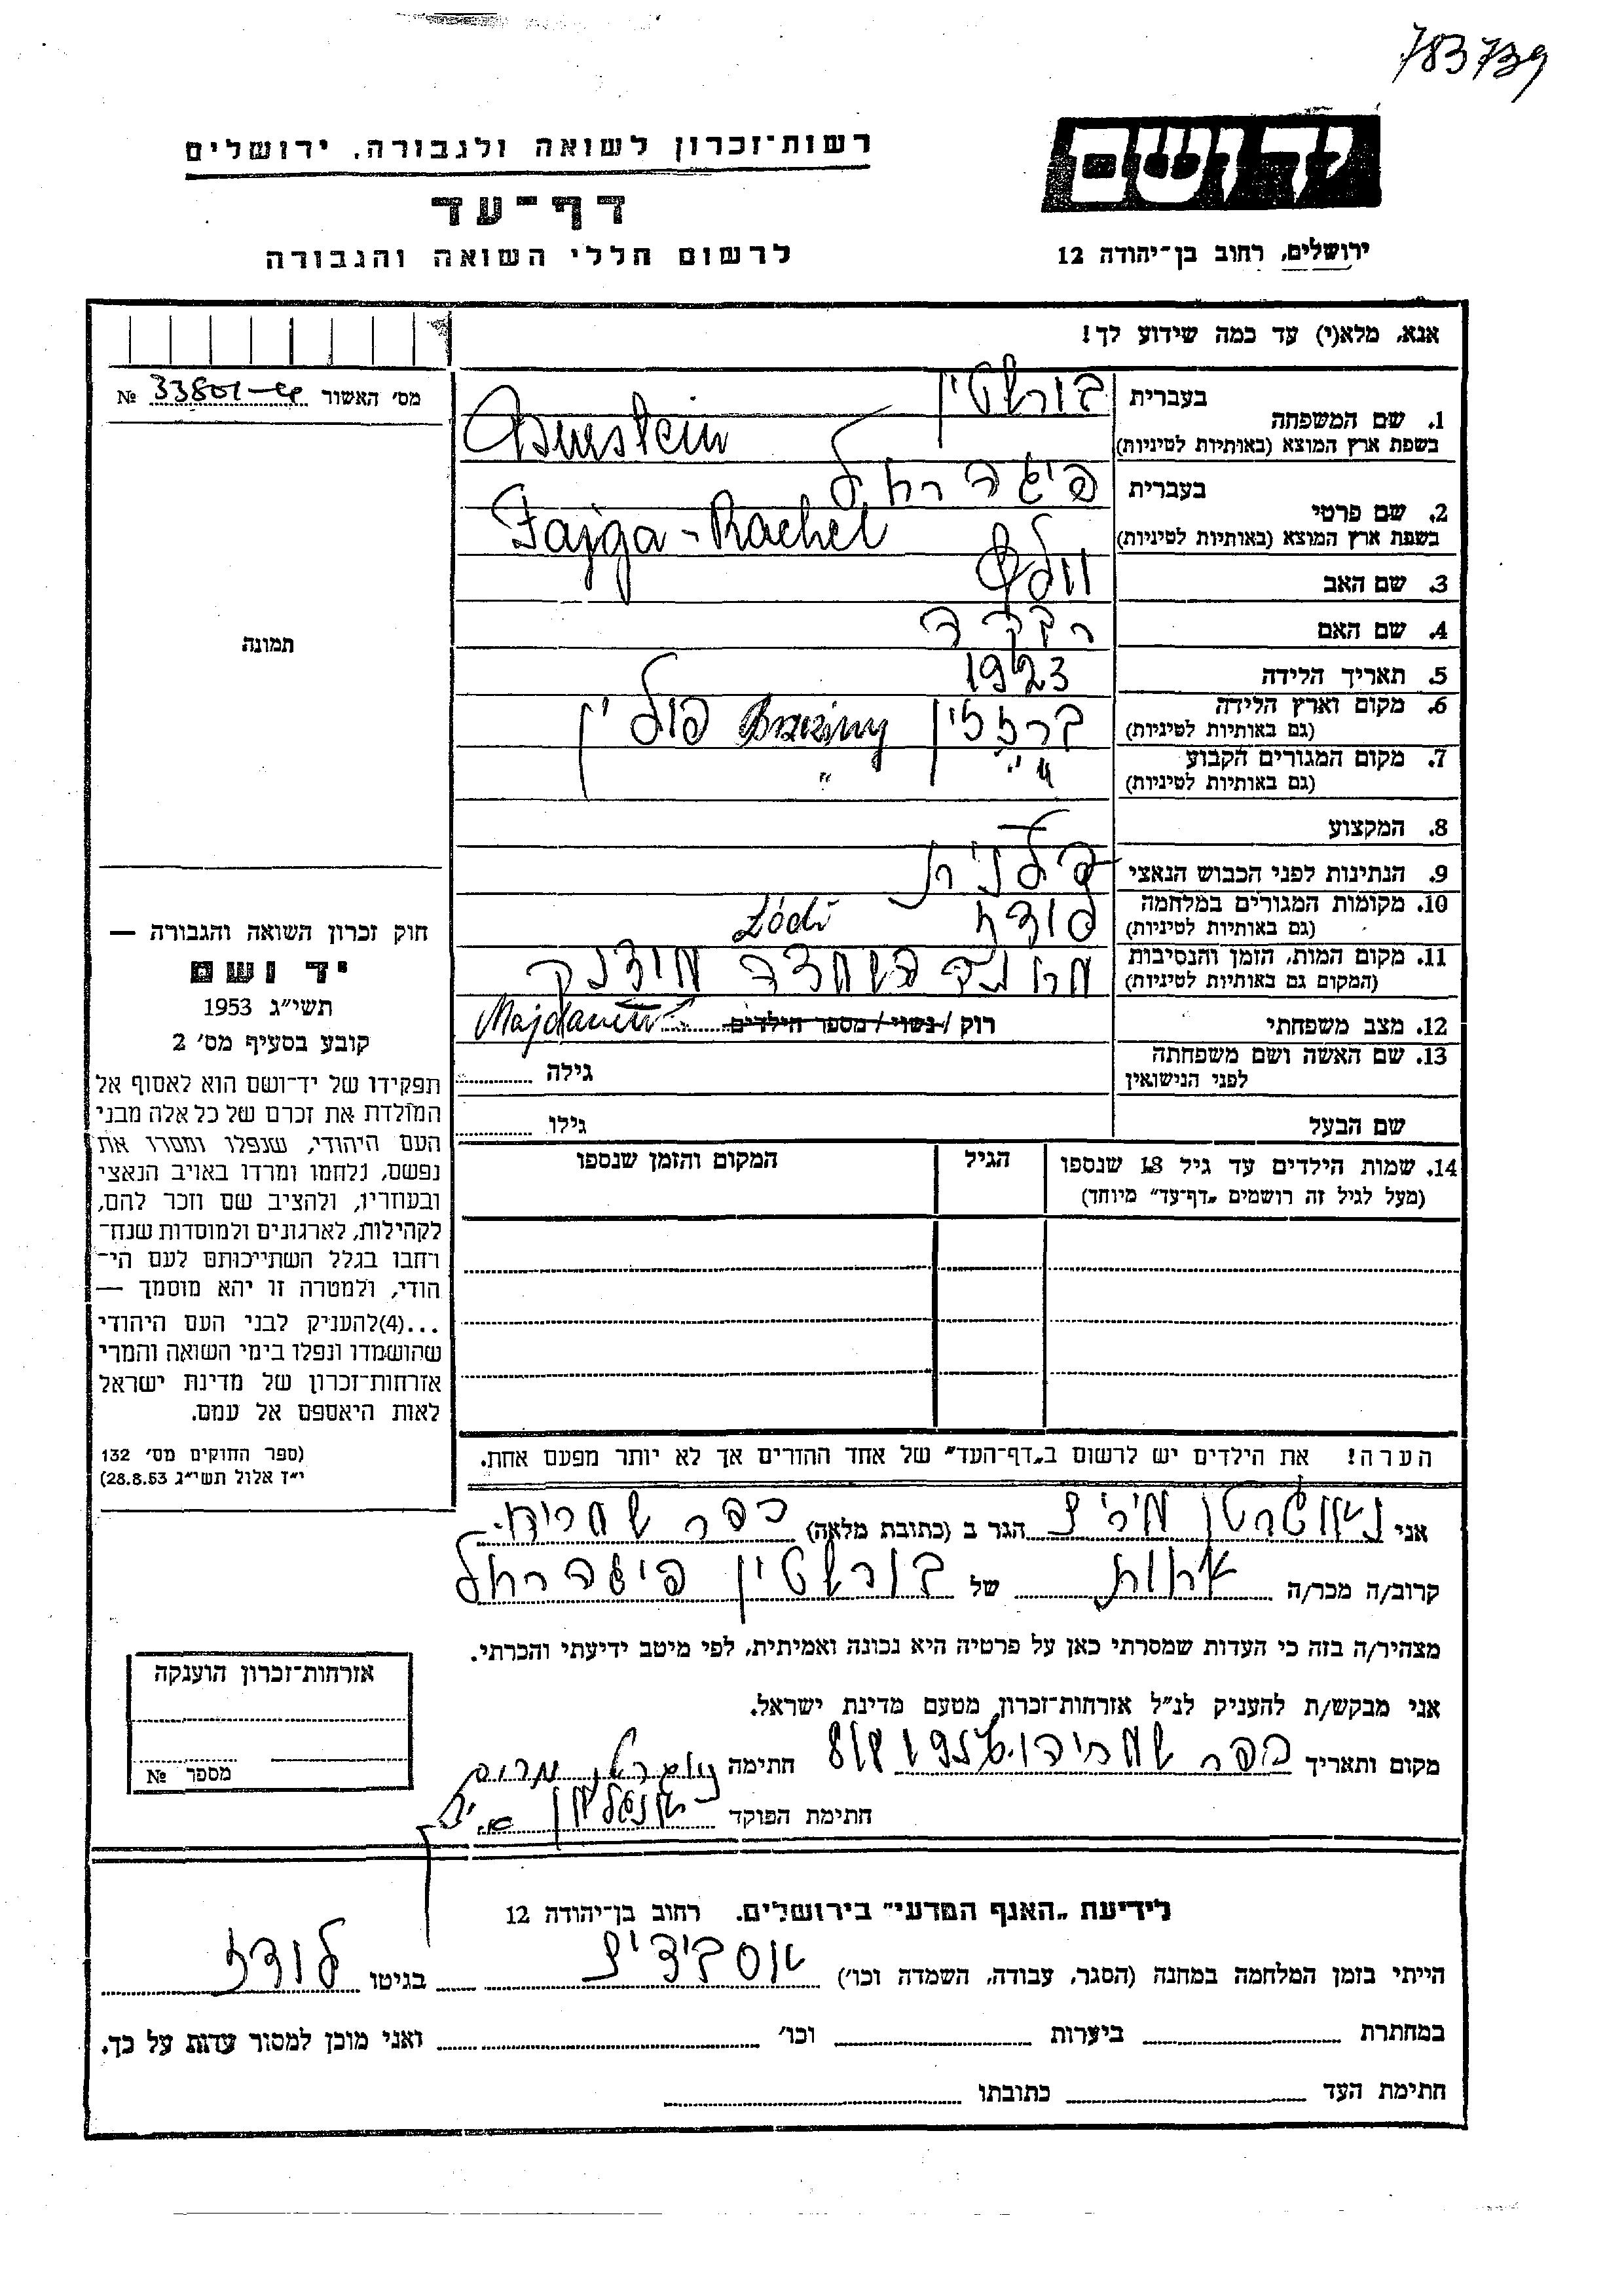 783739
רשות־זכרון לשואה ולגבורה, ירושלים
יד ושם
דף־עד
לרשום חללי השואה והגבורה
ירושלים, רחוב בן־יהודה 12
אנא, מלא(י) עד כמה שידוע לך!
מס׳ האשור № 33801
1. שם המשפחה
בעברית בורשטין
בשפת ארץ המוצא (באותיות לטיניות) Burstein
2. שם פרטי
בעברית פיגה רחל
בשפת ארץ המוצא (באותיות לטיניות) Fajga-Rachel
3. שם האב וולף
4. שם האם רבקה
5. תאריך הלידה 1923
6. מקום וארץ הלידה ברזזין Brzeziny פולין
(גם באותיות לטיניות)
7. מקום המגורים הקבוע " "
(גם באותיות לטיניות)
8. המקצוע —
9. הנתינות לפני הכבוש הנאצי פלנית
10. מקומות המגורים במלחמה לודז Łódź
(גם באותיות לטיניות)
11. מקום המות, הזמן והנסיבות מחנה השמדה מידנק
(המקום גם באותיות לטיניות)
12. מצב משפחתי רוק / נשוי / מספר הילדים Majdanek
13. שם האשה ושם משפחתה גילה
לפני הנישואין
שם הבעל גילו
14. שמות הילדים עד גיל 18 שנספו הגיל המקום והזמן שנספו
(מעל לגיל זה רושמים „דף־עד״ מיוחד)
הערה! את הילדים יש לרשום ב„דף־העד״ של אחד ההורים אך לא יותר מפעם אחת.
תמונה
חוק זכרון השואה והגבורה —
יד ושם
תשי״ג 1953
קובע בסעיף מס׳ 2
תפקידו של יד־ושם הוא לאסוף אל
המולדת את זכרם של כל אלה מבני
העם היהודי, שנפלו ומסרו את
נפשם, נלחמו ומרדו באויב הנאצי
ובעוזריו, ולהציב שם וזכר להם,
לקהילות, לארגונים ולמוסדות שנח־
רחבו בגלל השתייכותם לעם הי־
הודי, ולמטרה זו יהא מוסמך —
...(4)להעניק לבני העם היהודי
שהושמדו ונפלו בימי השואה והמרי
אזרחות־זכרון של מדינת ישראל
לאות היאספם אל עמם.
(ספר החוקים מס׳ 132
י״ז אלול תשי״ג 28.8.53)
אני הגר ב (כתובת מלאה) כפר שמריהו
קרוב/ה מכר/ה אחות של בורשטין פיגה רחל
מצהיר/ה בזה כי העדות שמסרתי כאן על פרטיה היא נכונה ואמיתית, לפי מיטב ידיעתי והכרתי.
אני מבקש/ת להעניק לנ״ל אזרחות־זכרון מטעם מדינת ישראל.
מקום ותאריך כפר שמריהו חתימה
חתימת הפוקד
אזרחות־זכרון הוענקה
מספר №
לידיעת „האגף המדעי״ בירושלים. רחוב בן־יהודה 12
הייתי בזמן המלחמה במחנה (הסגר, עבודה, השמדה וכו׳) בגיטו לודז
במחתרת ביערות וכו׳ ואני מוכן למסור עדות על כך.
חתימת העד כתובתו